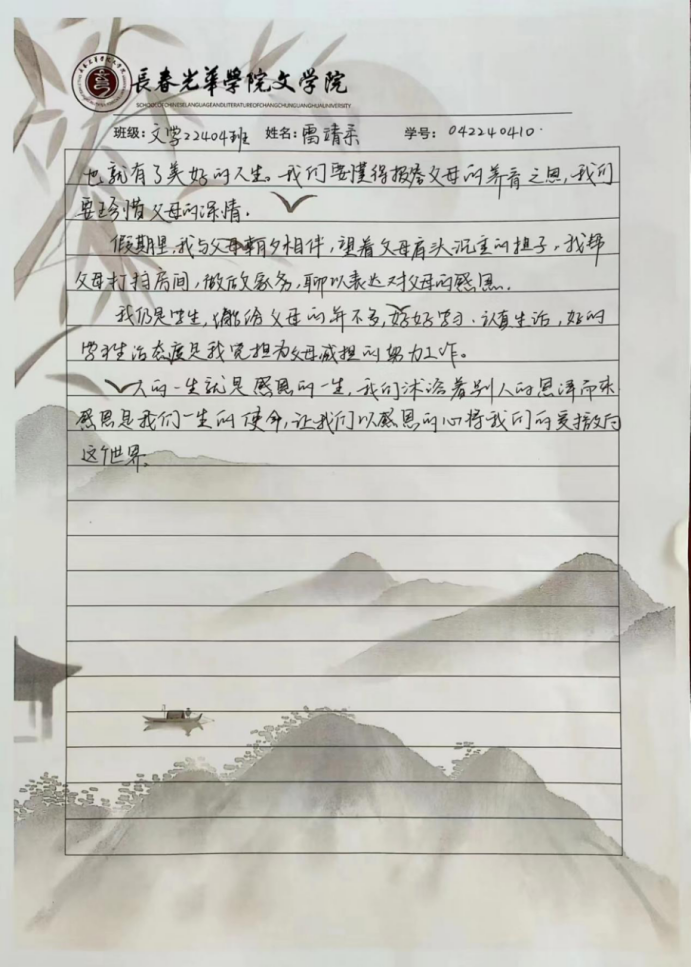 長春光華學院文学院
SCHOOL OF CHINESE LANGUAGE AND LITERATURE OF CHANGCHUN GUANGHUA UNIVERSITY
班级:文学22404班 姓名:雷靖 学号:042240410
也就有了美好的人生。我们要懂得报答父母的养育之恩,我们
要珍惜父母的深情.
假期里,我与父母朝夕相伴,望着父母肩头沉重的担子,我帮
父母打扫房间,做做家务,聊以表达对父母的感恩.
我仍是学生,能给父母的并不多,好好学习、认真生活,好的
学习生活态度是我 担为父母减担的努力工作。
人的一生就是感恩的一生,我们沐浴着别人的恩泽而来
感恩是我们一生的使命,让我们以感恩的心将我们的爱撒向
这个世界.